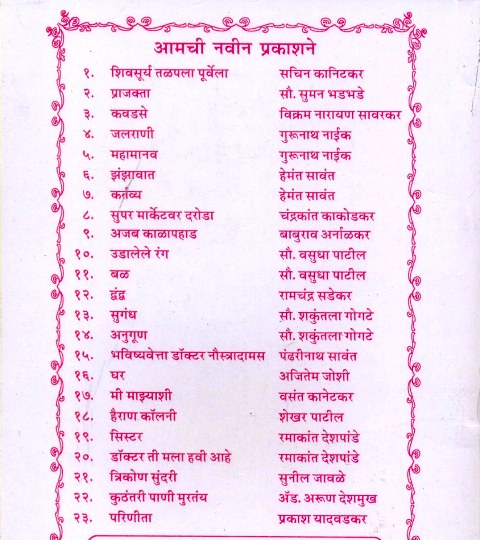 आमची नवीन प्रकाशने
१. शिवसूर्य तळपला पूर्वेला सचिन कानिटकर
२. प्राजक्ता सौ. सुमन भडभडे
३. कवडसे विक्रम नारायण सावरकर
४. जलराणी गुरूनाथ नाईक
५. महामानव गुरूनाथ नाईक
६. झंझावात हेमंत सावंत
७. कर्तव्य हेमंत सावंत
८. सुपर मार्केटवर दरोडा चंद्रकांत काकोडकर
९. अजब काळापहाड बाबुराव अर्नाळकर
१०. उडालेले रंग सौ. वसुधा पाटील
११. बळ सौ. वसुधा पाटील
१२. द्वंद्व रामचंद्र सडेकर
१३. सुगंध सौ. शकुंतला गोगटे
१४. अनुगूण सौ. शकुंतला गोगटे
१५. भविष्यवेत्ता डॉक्टर नौस्त्रादामस पंढरीनाथ सावंत
१६. घर अजितेम जोशी
१७. मी माझ्याशी वसंत कानेटकर
१८. हैराण कॉलनी शेखर पाटील
१९. सिस्टर रमाकांत देशपांडे
२०. डॉक्टर ती मला हवी आहे रमाकांत देशपांडे
२१. त्रिकोण सुंदरी सुनील जावळे
२२. कुठंतरी पाणी मुरतंय ॲड. अरूण देशमुख
२३. परिणीता प्रकाश यादवडकर